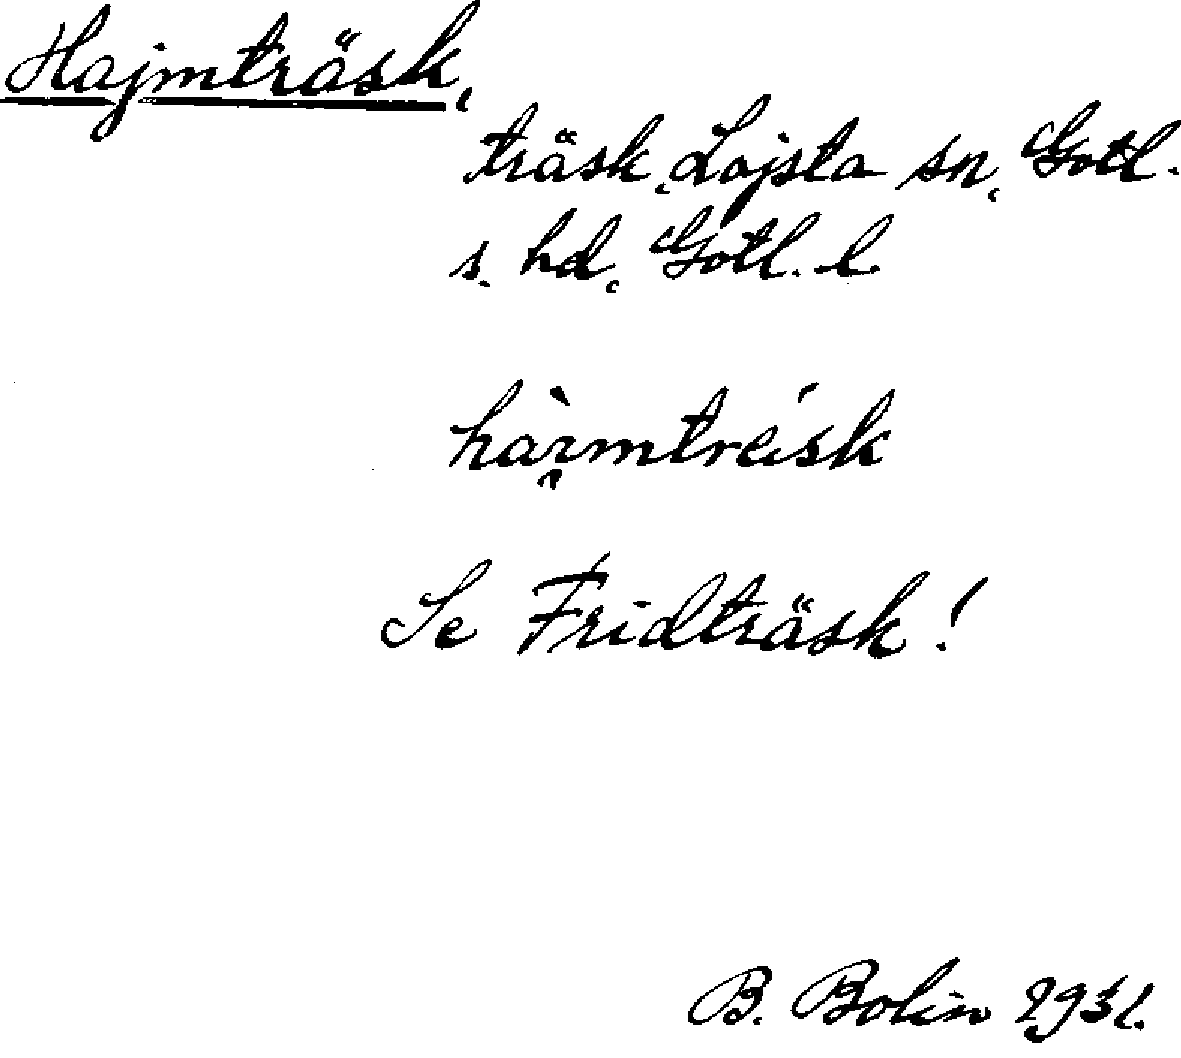 Hajmträsk,
träsk, Lojsta sn, Gotl.
s. hd, Gotl. l.
Se Fridträsk!
B. Bolin 1931.